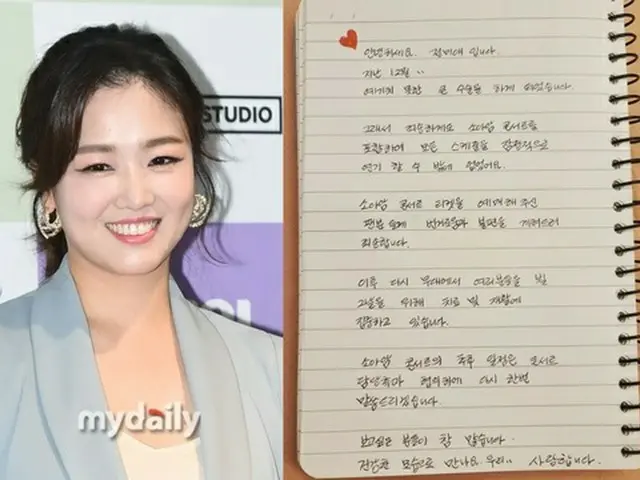 STUDIO
mydaily
안녕하세요. 정미애 입니다.
지난 12월..
예기치 못한 큰 수술을 하게 되었습니다.
그래서 죄송하게도 소아암 콘서트를
포함하여 모든 스케줄을 잠정적으로
연기 할 수 밖에 없었어요.
소아암 콘서트 티켓을 예매해 주신
팬분들께 번거로움과 불편을 끼쳐드려
죄송합니다.
이후 다시 무대에서 여러분들을 뵐
그날을 위해 치료 및 재활에
집중하고 있습니다.
소아암 콘서트의 추후 일정은 콘서트
담당측과 협의하여 다시 한번
말씀드리겠습니다.
보고싶은 분들이 참 많습니다.
건강한 모습으로 만나요. 우리.. 사랑합니다.